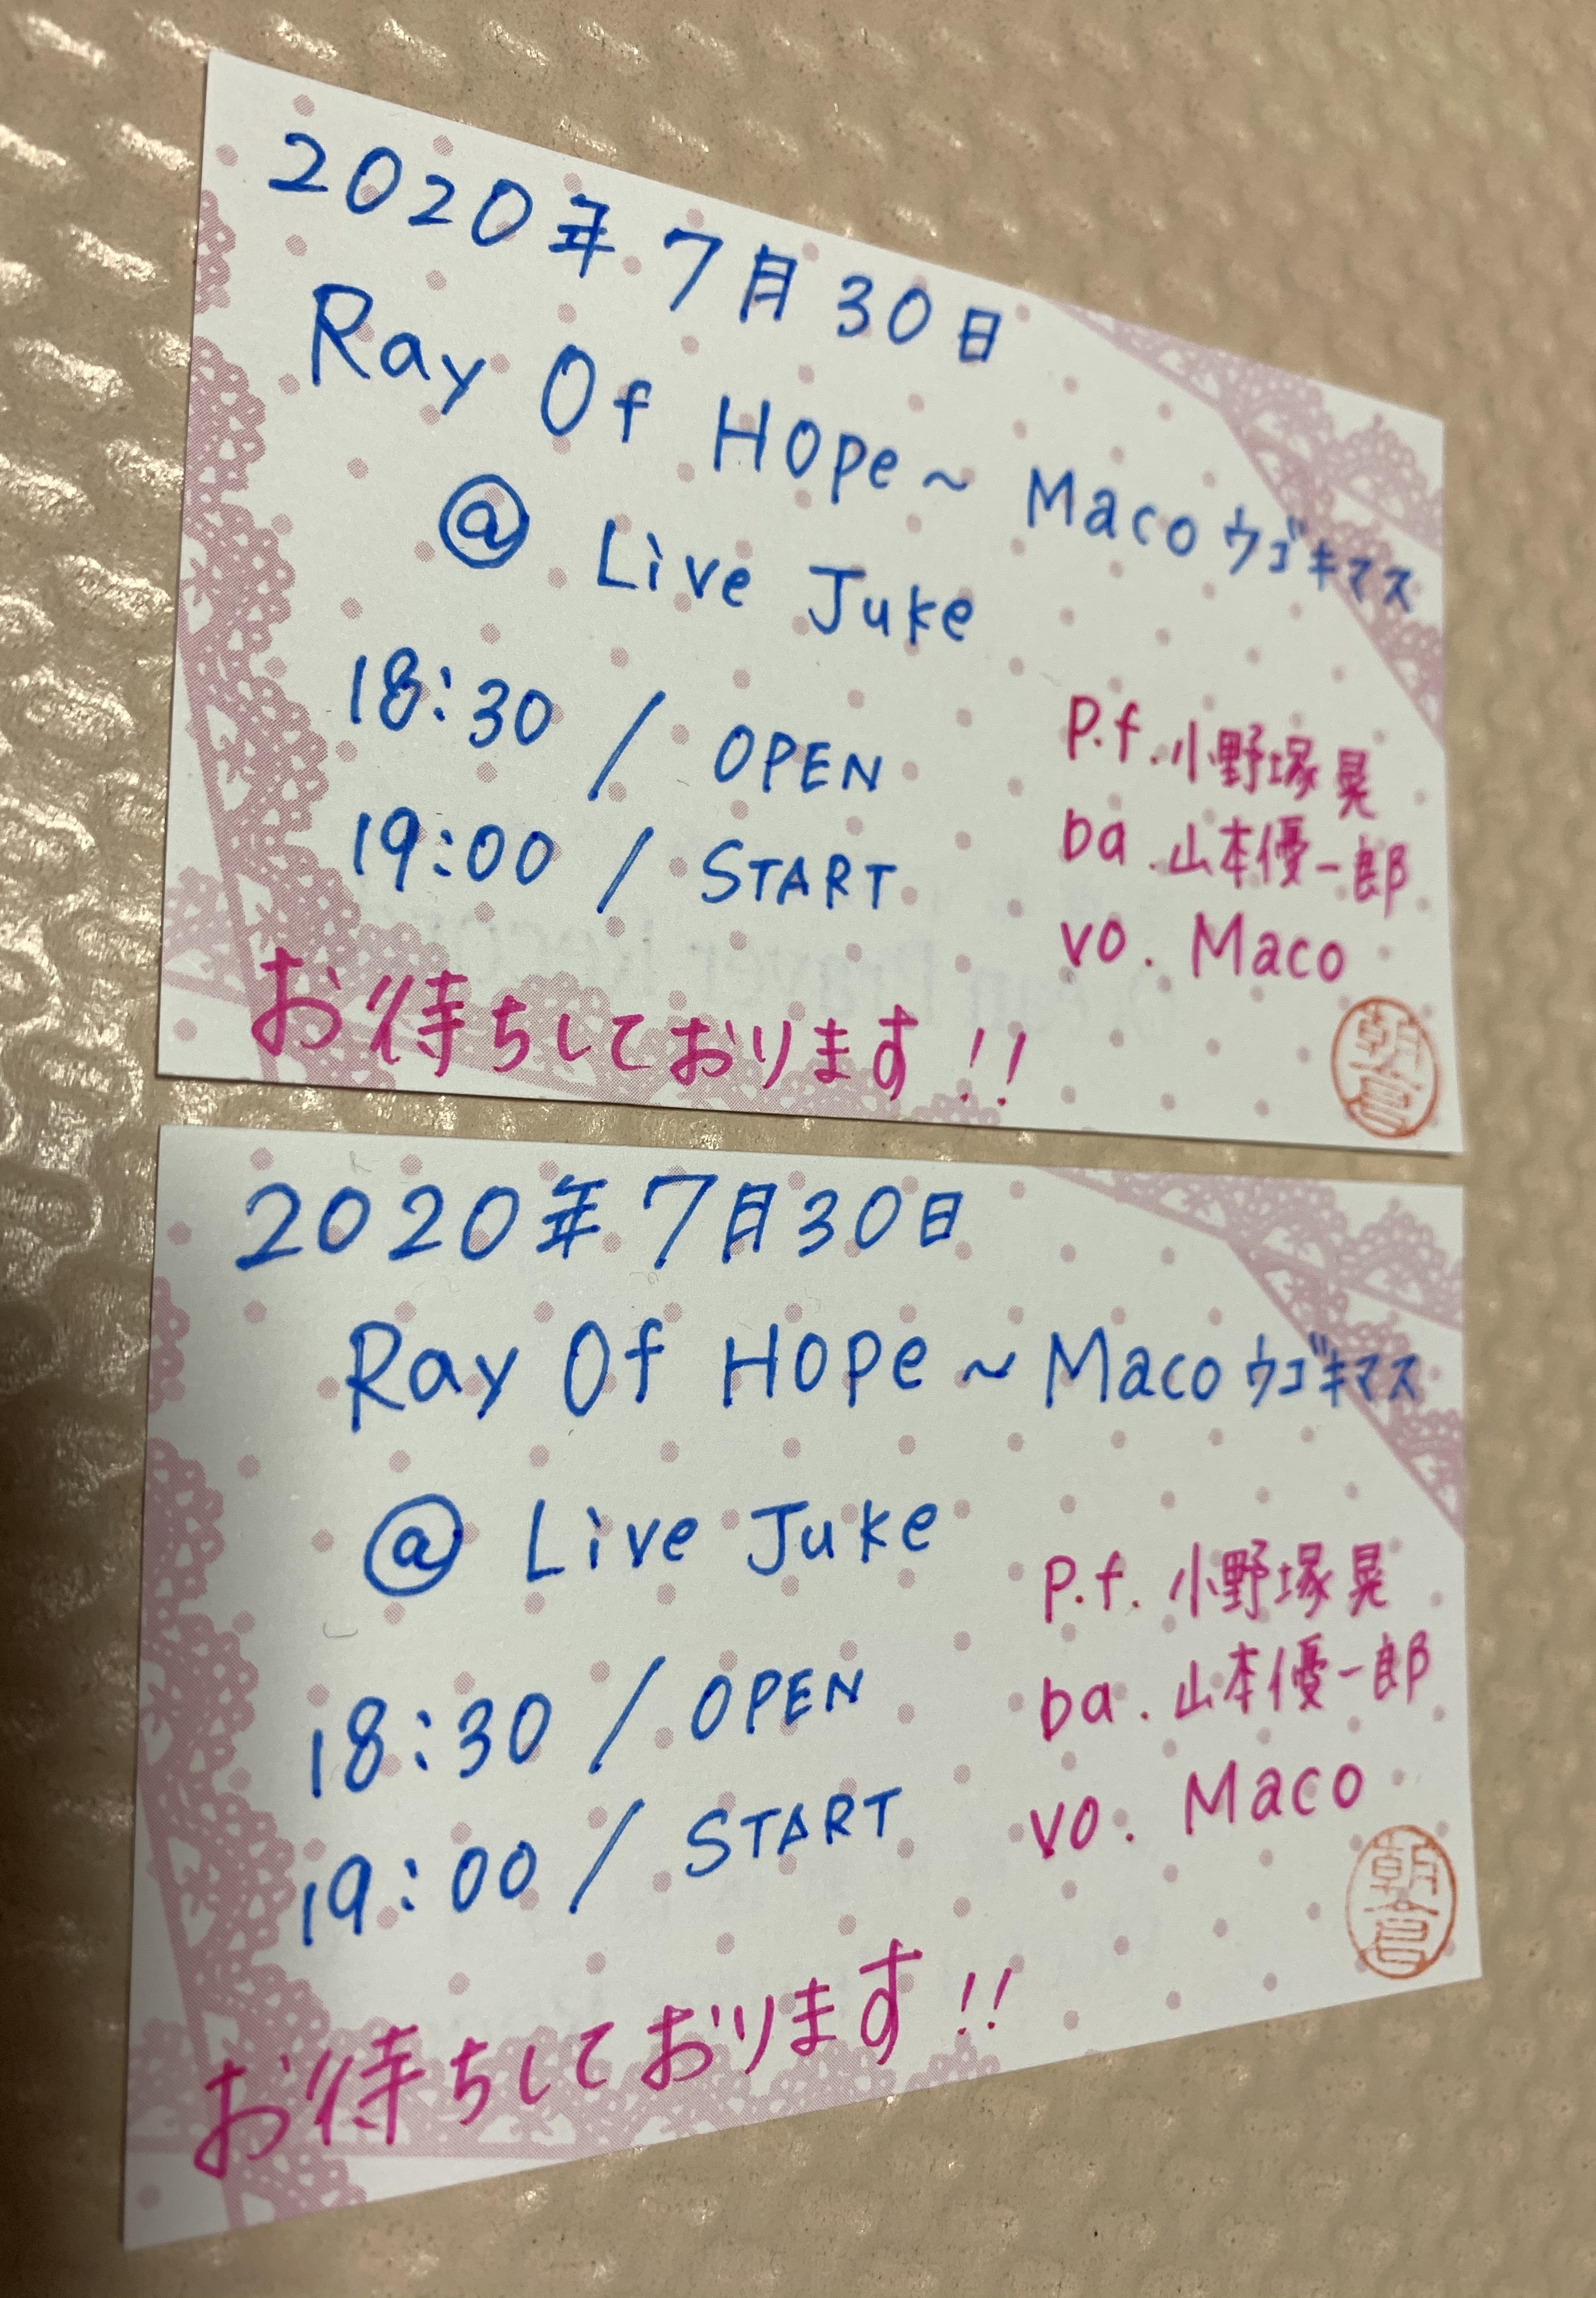 2020年7月30日
Ray Of Hope～Macoウゴキマス
@ Live Juke
18:30 / OPEN
19:00 / START
P.f. 小野塚晃
ba. 山本優一郎
vo. Maco
お待ちしております!!
朝倉
2020年7月30日
Ray Of Hope～Macoウゴキマス
@ Live Juke
18:30 / OPEN
19:00 / START
P.f. 小野塚晃
ba. 山本優一郎
vo. Maco
お待ちしております!!
朝倉